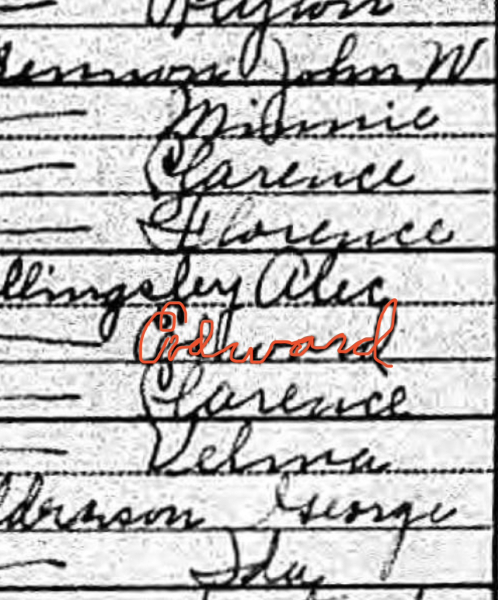 Peyton
John W
— Minnie
— Clarence
— Florence
llingsley Alec
— Edward
— Clarence
— Velma
George
— Ida